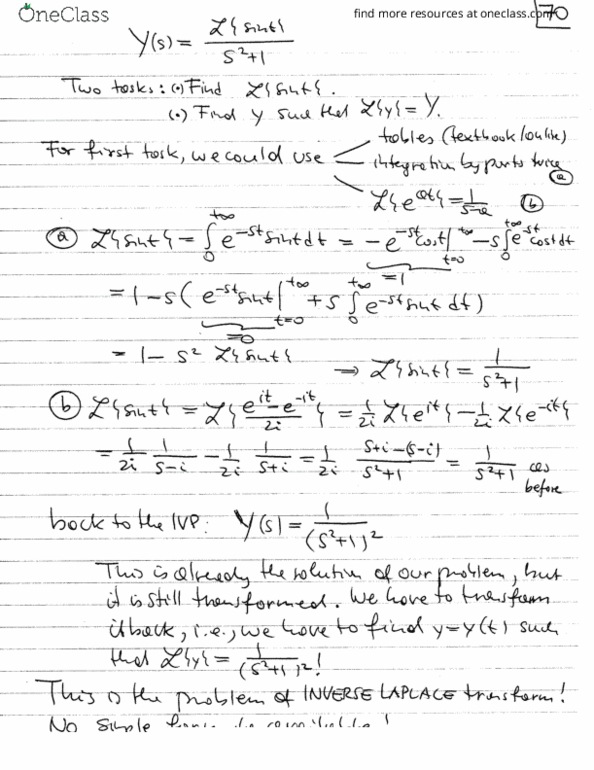 OneClass
find more resources at oneclass.com
70
Y(s) = L{sint} / s²+1
Two tasks: (•) Find L{sint}.
(•) Find y such that L{y} = Y.
For first task, we could use
tables (textbook/online)
integration by parts twice (a)
L{e^{at}} = 1/(s-a) (b)
(a) L{sint} = ∫₀^{+∞} e^{-st} sint dt = -e^{-st} cost |_{t=0}^{+∞} - s ∫₀^{+∞} e^{-st} cost dt
=1
= 1 - s ( e^{-st} sint |_{t=0}^{+∞} + s ∫₀^{+∞} e^{-st} sint dt )
=0
= 1 - s² L{sint}
→ L{sint} = 1/(s²+1)
(b) L{sint} = L{(e^{it} - e^{-it})/2i} = 1/2i L{e^{it}} - 1/2i L{e^{-it}}
= 1/2i 1/(s-i) - 1/2i 1/(s+i) = 1/2i (s+i-(s-i))/(s²+1) = 1/(s²+1) as
before
back to the IVP: Y(s) = 1/(s²+1)²
This is already the solution of our problem, but
it is still transformed. We have to transform
it back, i.e., we have to find y=y(t) such
that L{y} = 1/(s²+1)²!
This is the problem of INVERSE LAPLACE transform!
No simple